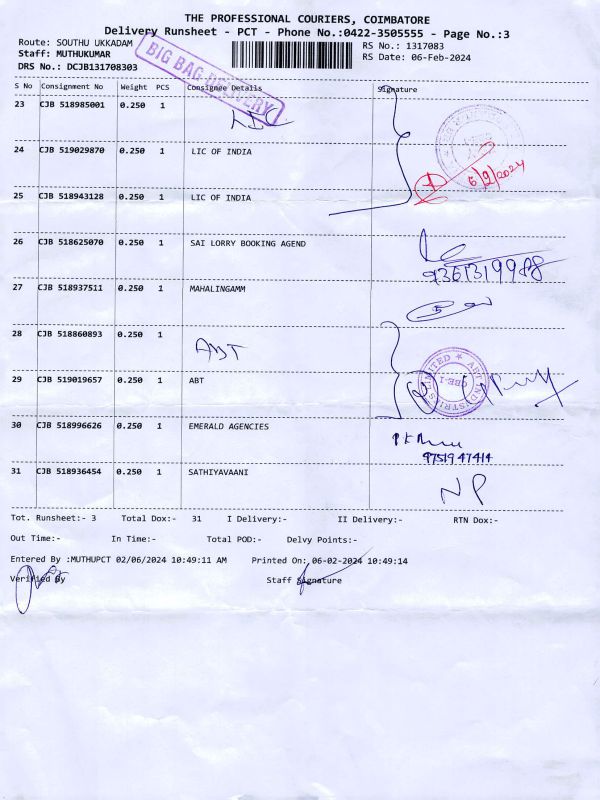 THE PROFESSIONAL COURIERS, COIMBATORE
Delivery Runsheet - PCT - Phone No.:0422-3505555 - Page No.:3
Route: SOUTHU UKKADAM
RS No.: 1317083
Staff: MUTHUKUMAR
RS Date: 06-Feb-2024
DRS No.: DCJB131708303
BIG BAG DELIVERY
S No Consignment No Weight PCS Consignee Details Signature
23 CJB 518985001 0.250 1 LIC
24 CJB 519029870 0.250 1 LIC OF INDIA
6/2/2024
25 CJB 518943128 0.250 1 LIC OF INDIA
26 CJB 518625070 0.250 1 SAI LORRY BOOKING AGEND
9361319988
27 CJB 518937511 0.250 1 MAHALINGAMM
28 CJB 518860893 0.250 1 ABT
29 CJB 519019657 0.250 1 ABT
ABT INDUSTRIES LIMITED
CBE-1
30 CJB 518996626 0.250 1 EMERALD AGENCIES
9751947414
31 CJB 518936454 0.250 1 SATHIYAVAANI NP
Tot. Runsheet:- 3 Total Dox:- 31 I Delivery:- II Delivery:- RTN Dox:-
Out Time:- In Time:- Total POD:- Delvy Points:-
Entered By :MUTHUPCT 02/06/2024 10:49:11 AM Printed On: 06-02-2024 10:49:14
Verified By Staff Signature